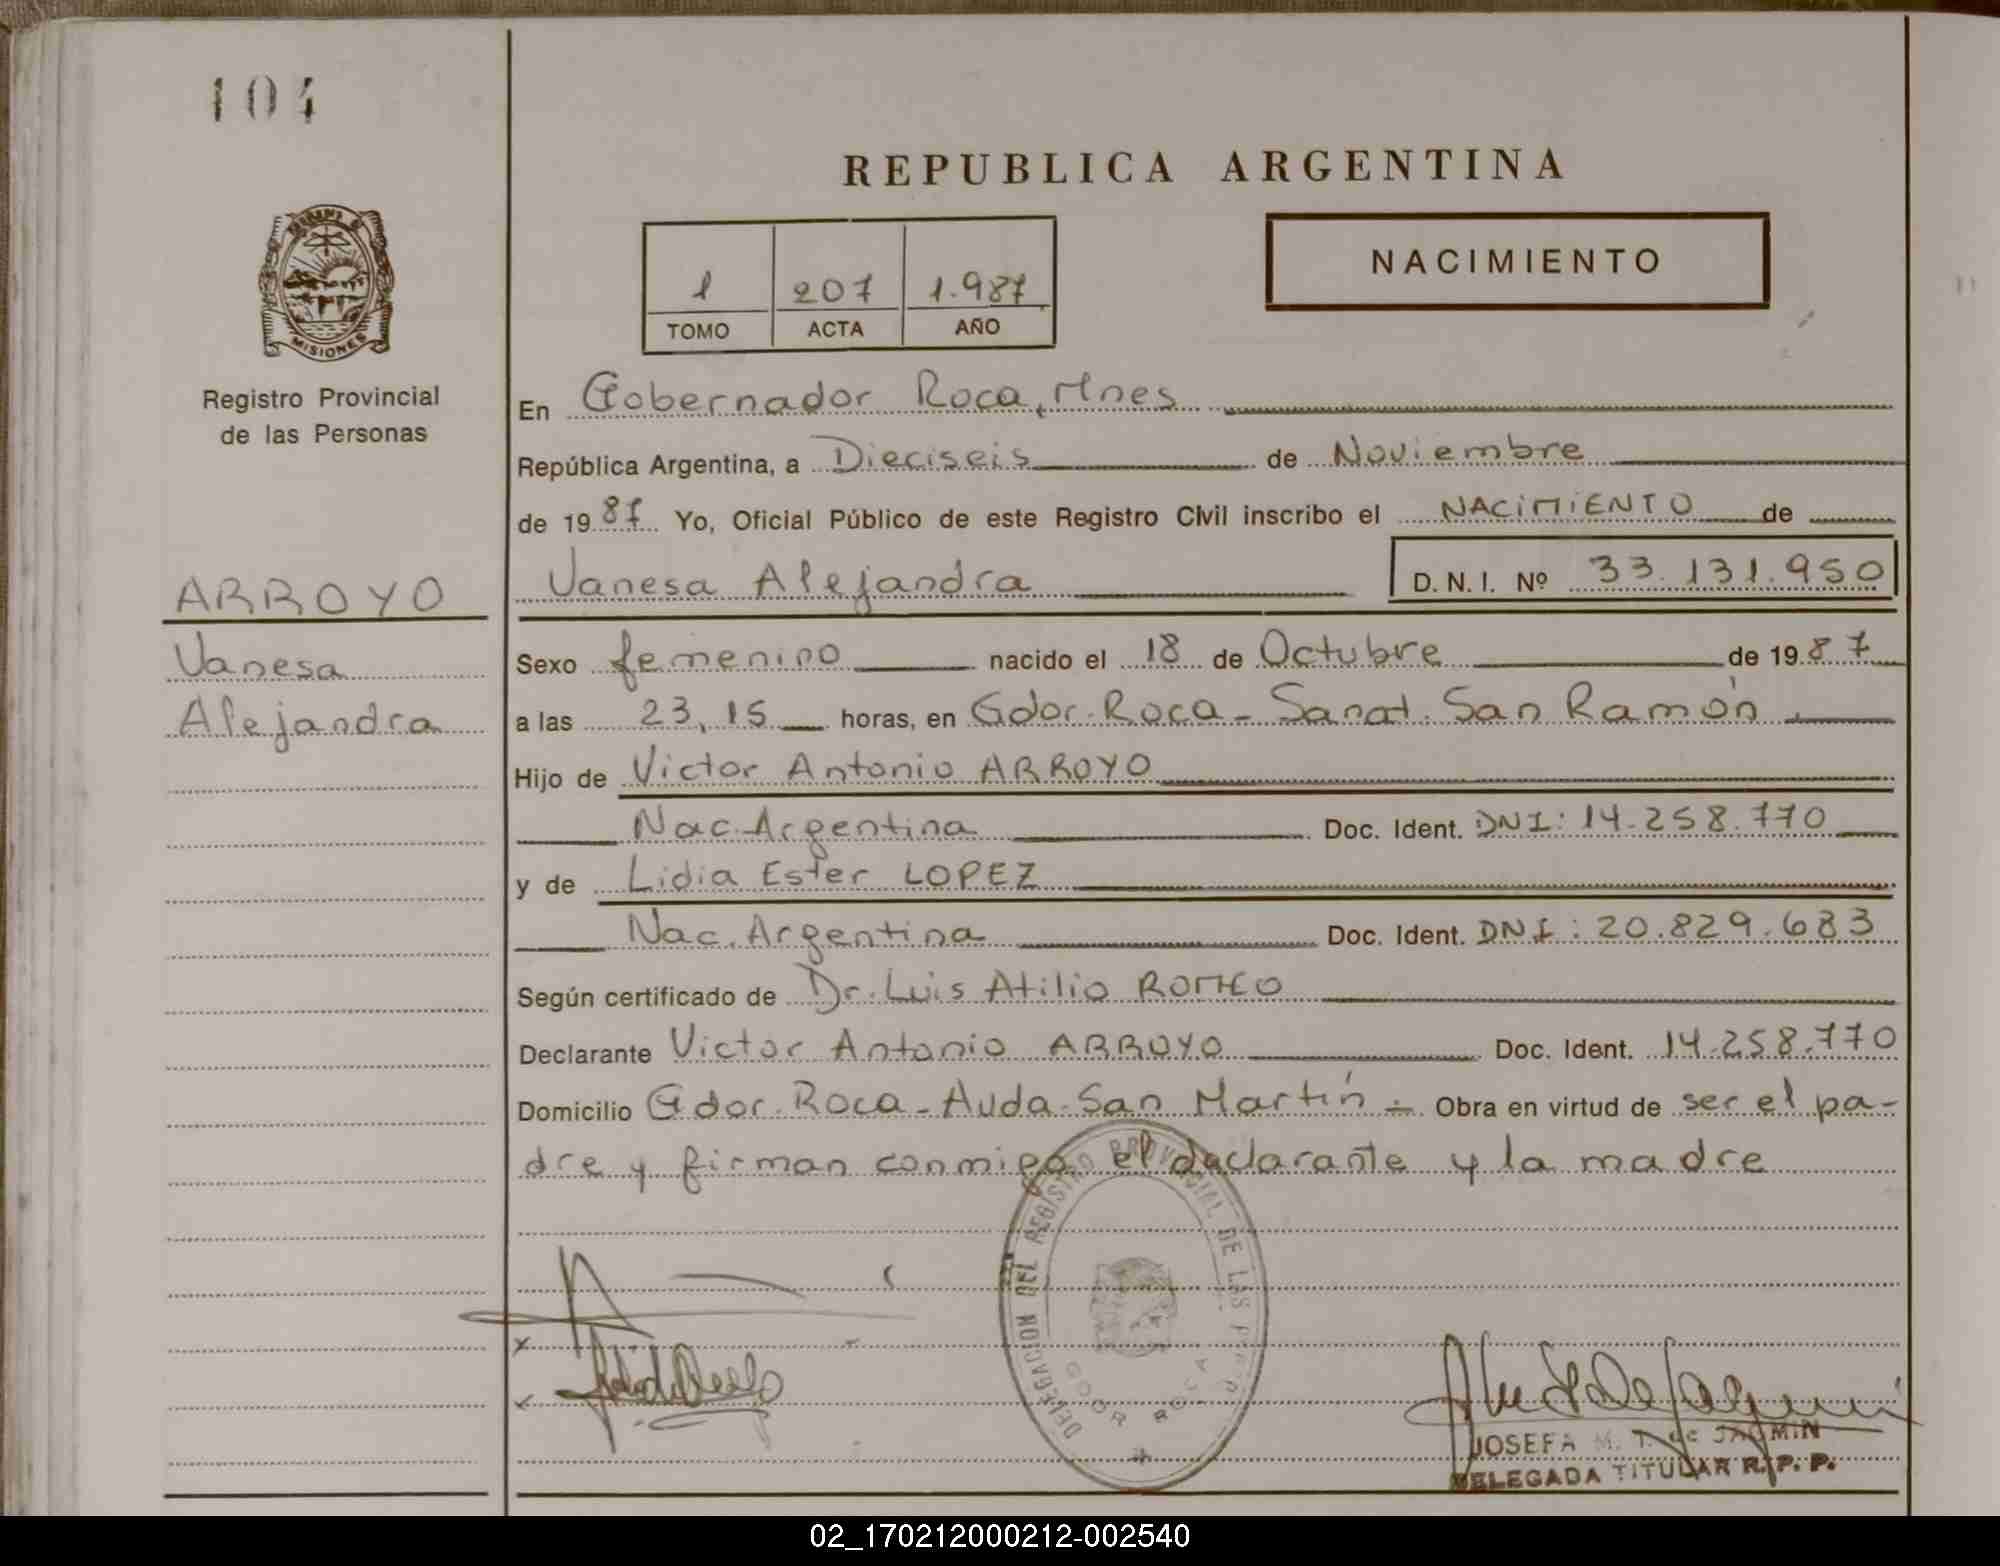 104
REPUBLICA ARGENTINA
NACIMIENTO
1 207 1.987
TOMO ACTA AÑO
MISIONES
Registro Provincial
de las Personas
En Gobernador Roca, Mnes
República Argentina, a Dieciseis de Noviembre
de 1987 Yo, Oficial Público de este Registro Civil inscribo el NACIMIENTO de
Vanesa Alejandra D. N. I. Nº 33.131.950
ARROYO
Vanesa
Alejandra
Sexo femenino nacido el 18 de Octubre de 1987
a las 23,15 horas, en Gdor. Roca - Sanat. San Ramón
Hijo de Victor Antonio ARROYO
Nac. Argentina Doc. Ident. DNI: 14.258.770
y de Lidia Ester LOPEZ
Nac. Argentina Doc. Ident. DNI: 20.829.683
Según certificado de Dr. Luis Atilio ROMEO
Declarante Victor Antonio ARROYO Doc. Ident. 14.258.770
Domicilio Gdor. Roca - Avda. San Martín - Obra en virtud de ser el pa-
dre y firman conmigo el declarante y la madre
DELEGACION DEL REGISTRO PROVINCIAL DE LAS
GDOR ROCA
JOSEFA M. T. de JACMIN
DELEGADA TITULAR R. P. P.
02_170212000212-002540